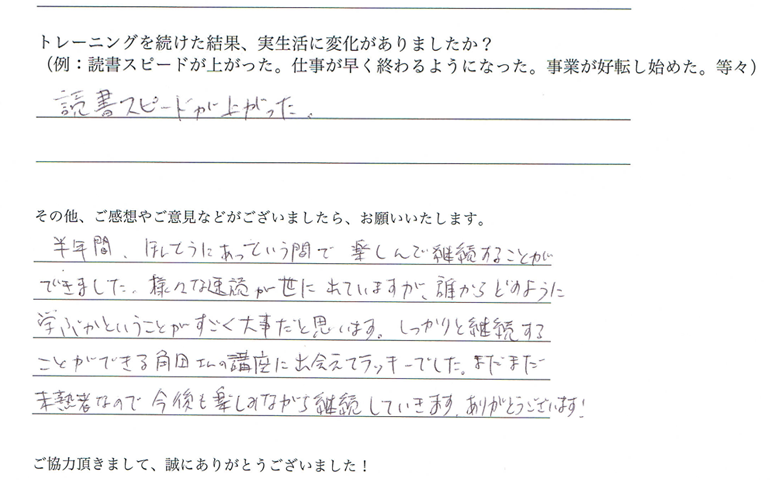 トレーニングを続けた結果、実生活に変化がありましたか？
（例：読書スピードが上がった。仕事が早く終わるようになった。事業が好転し始めた。等々）
読書スピードが上がった。
その他、ご感想やご意見などがございましたら、お願いいたします。
半年間、ほんとうにあっという間で 楽しんで継続することが
できました。様々な速読が世に出ていますが、誰からどのように
学ぶかということがすごく大事だと思います。しっかりと継続する
ことができる角田さんの講座に出会えてラッキーでした。まだまだ
未熟者なので今後も楽しみながら継続していきます。ありがとうございます！
ご協力頂きまして、誠にありがとうございました！